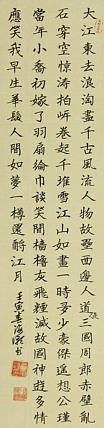 大江東去浪淘盡千古風流人物故壘西邊人道是三國周郎赤壁亂
石穿空驚濤拍岈卷起千堆雪江山如畫一時多少豪傑遙想公瑾
當年小喬初嫁了羽扇綸巾談笑間檣櫓灰飛煙滅故國神遊多情
應笑我早生華髮人間如夢一樽還酹江月 壬寅春海